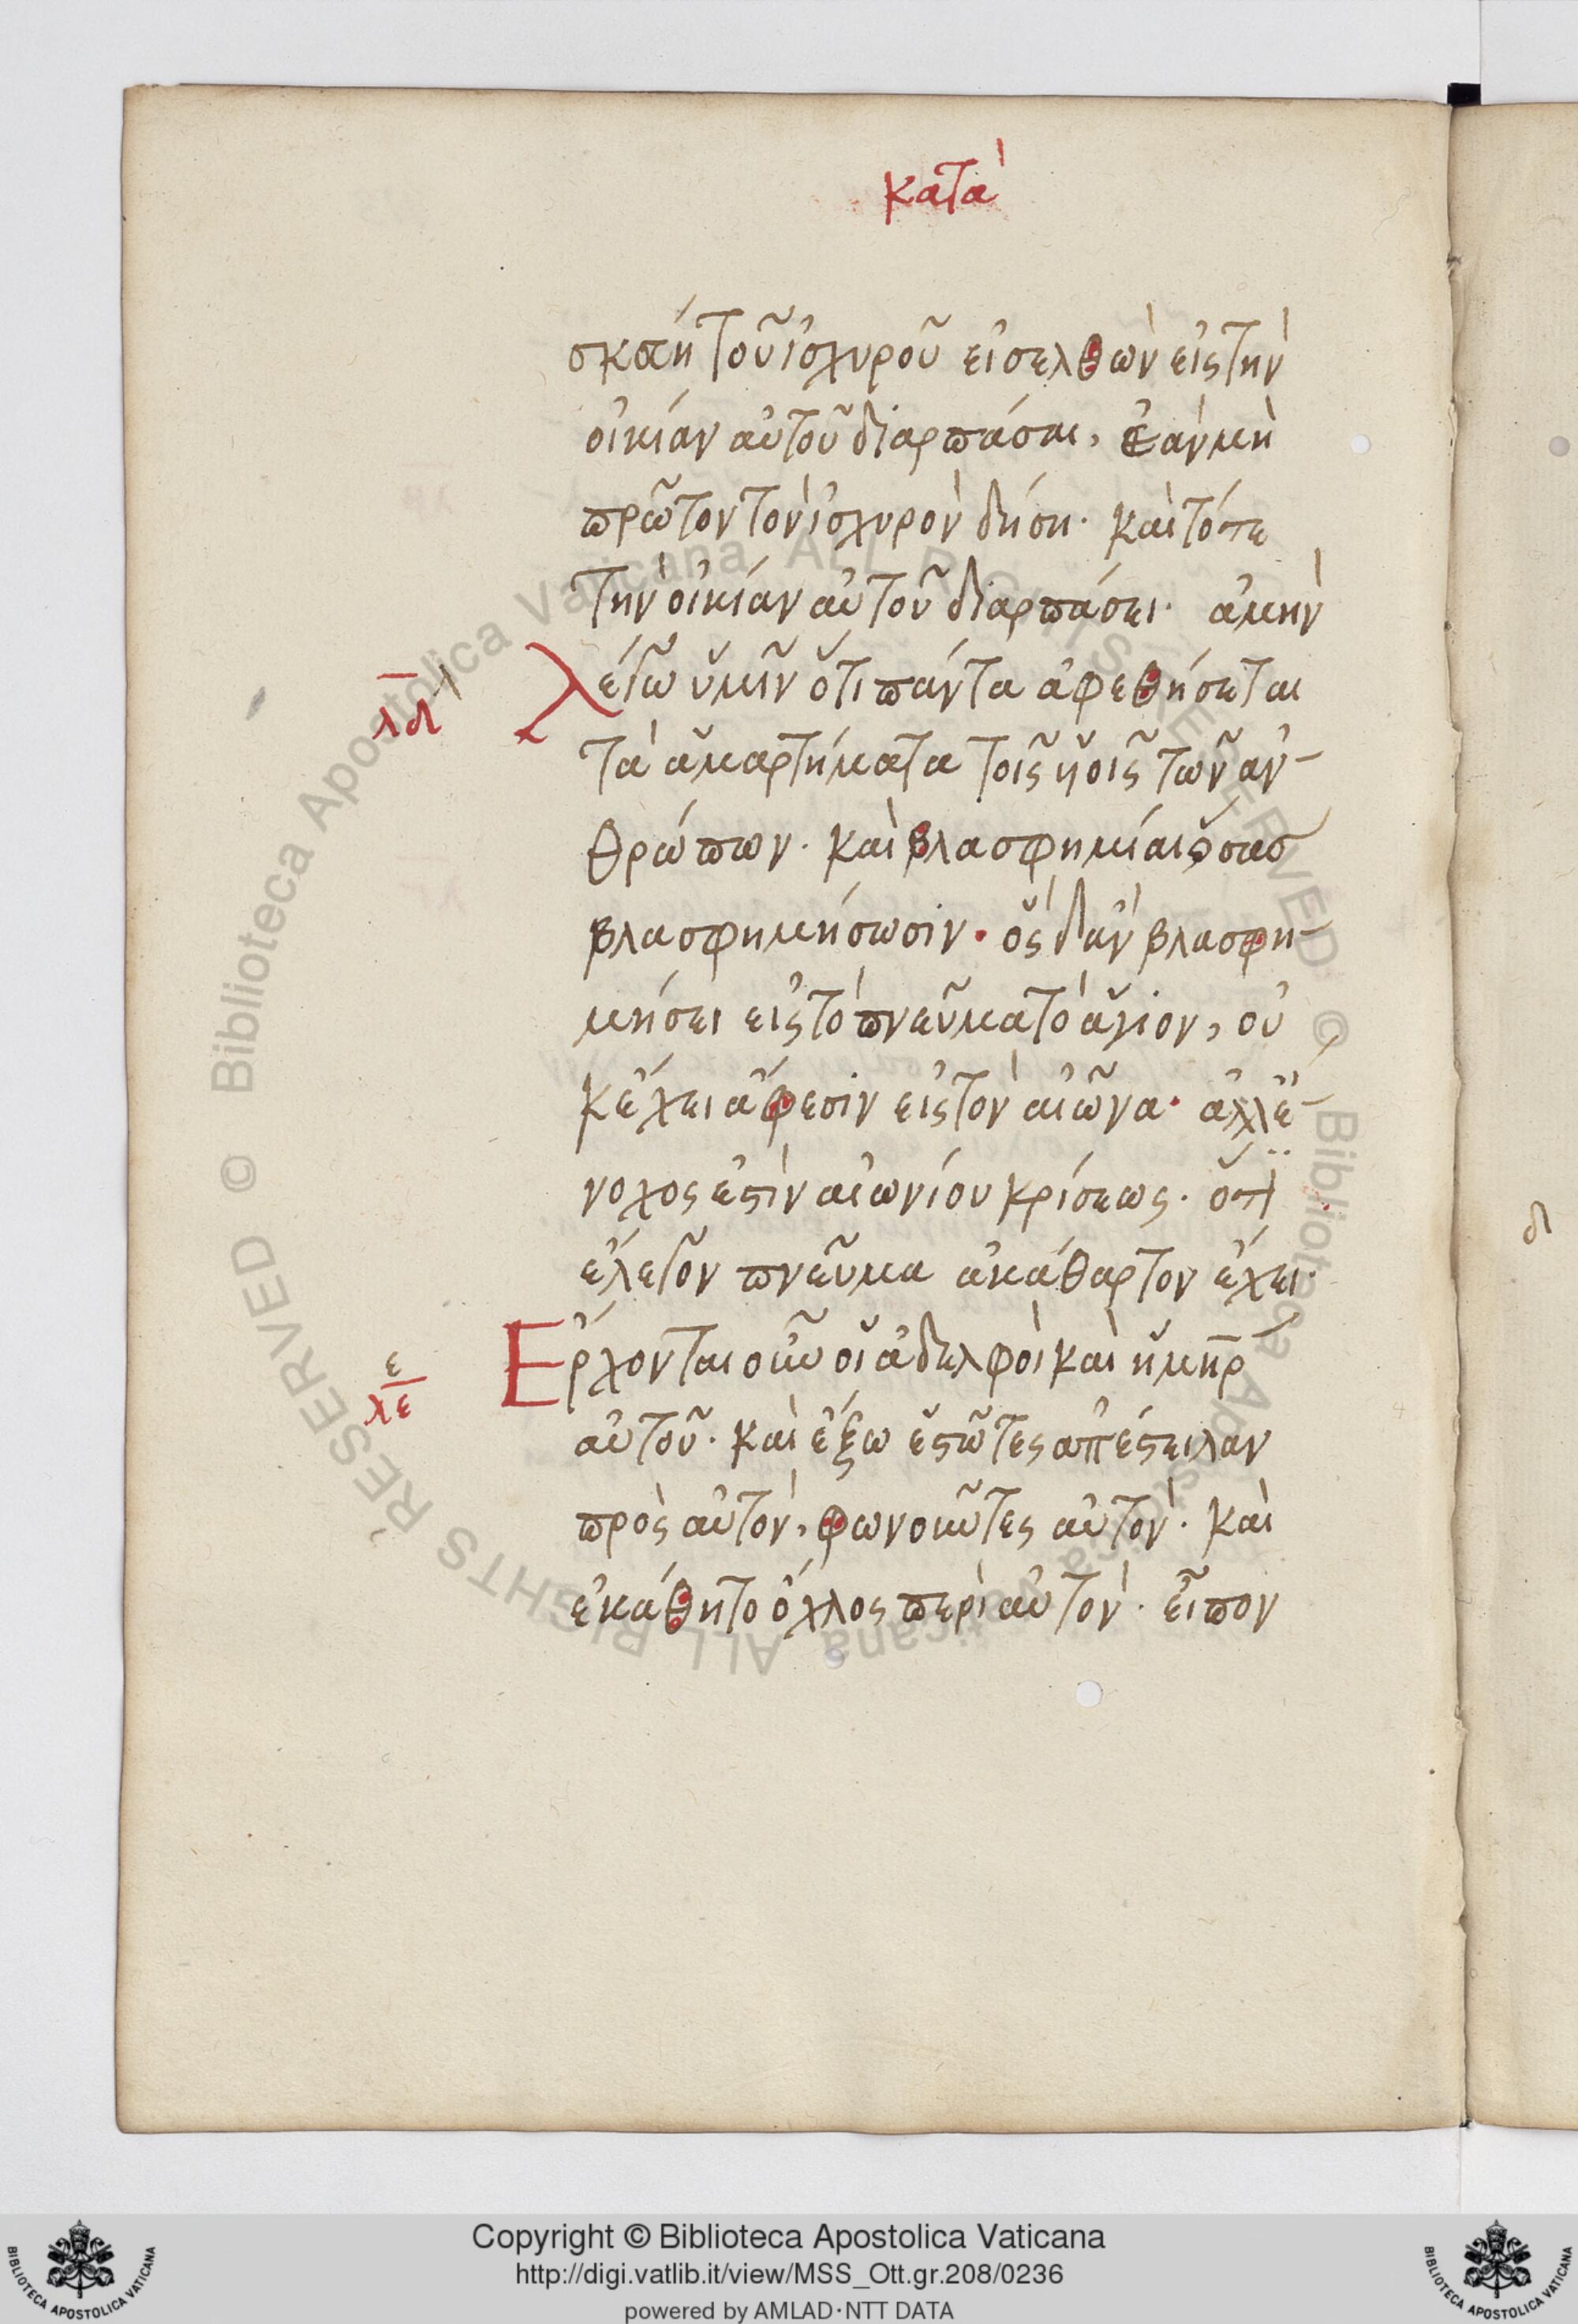 κατὰ
σκεύη τοῦ ἰσχυροῦ εἰσελθὼν εἰς τὴν
οἰκίαν αὐτοῦ διαρπάσαι, ἐὰν μὴ
πρῶτον τὸν ἰσχυρὸν δήσῃ· καὶ τότε
τὴν οἰκίαν αὐτοῦ διαρπάσει· ἀμὴν
λδ α
λέγω ὑμῖν ὅτι πάντα ἀφεθήσεται
τὰ ἁμαρτήματα τοῖς ὑοῖς τῶν ἀν-
θρώπων· καὶ βλασφημίαι ὅσας
βλασφημήσωσιν· ὃς δ ἂν βλασφη-
μήσει εἰς τὸ πνεῦμα τὸ ἅγιον, οὐ
κ ἔχει ἄφεσιν εἰς τὸν αἰῶνα· ἀλλ ἔ-
νοχος ἐστὶν αἰωνίου κρίσεως· ὅτι
ἔλεγον πνεῦμα ἀκάθαρτον ἔχει·
λε ε
Ἔρχονται οὖν οἱ ἀδελφοὶ καὶ ἡ μηρ
αὐτοῦ· καὶ ἔξω ἑστῶτες ἀπέστειλαν
πρὸς αὐτὸν, φωνοῦντες αὐτὸν· καὶ
ἐκάθητο ὄχλος περὶ αὐτὸν· εἶπον
δ
© Biblioteca Apostolica Vaticana ALL RIGHTS RESERVED © Biblioteca Apostolica Vaticana ALL RIGHTS RESERVED
BIBLIOTECA APOSTOLICA VATICANA
Copyright © Biblioteca Apostolica Vaticana
http://digi.vatlib.it/view/MSS_Ott.gr.208/0236
powered by AMLAD·NTT DATA
BIBLIOTECA APOSTOLICA VATICANA